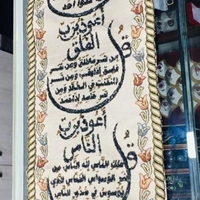 كفوا أحد
قل أعوذ برب
الفلق
من شر ما خلق ومن شر
غاسق إذا وقب ومن شر
النفثت في العقد ومن
شر حاسد إذا حسد
قل أعوذ برب
الناس
ملك الناس إله الناس من
شر الوسواس الخناس الذي
يوسوس في صدور الناس